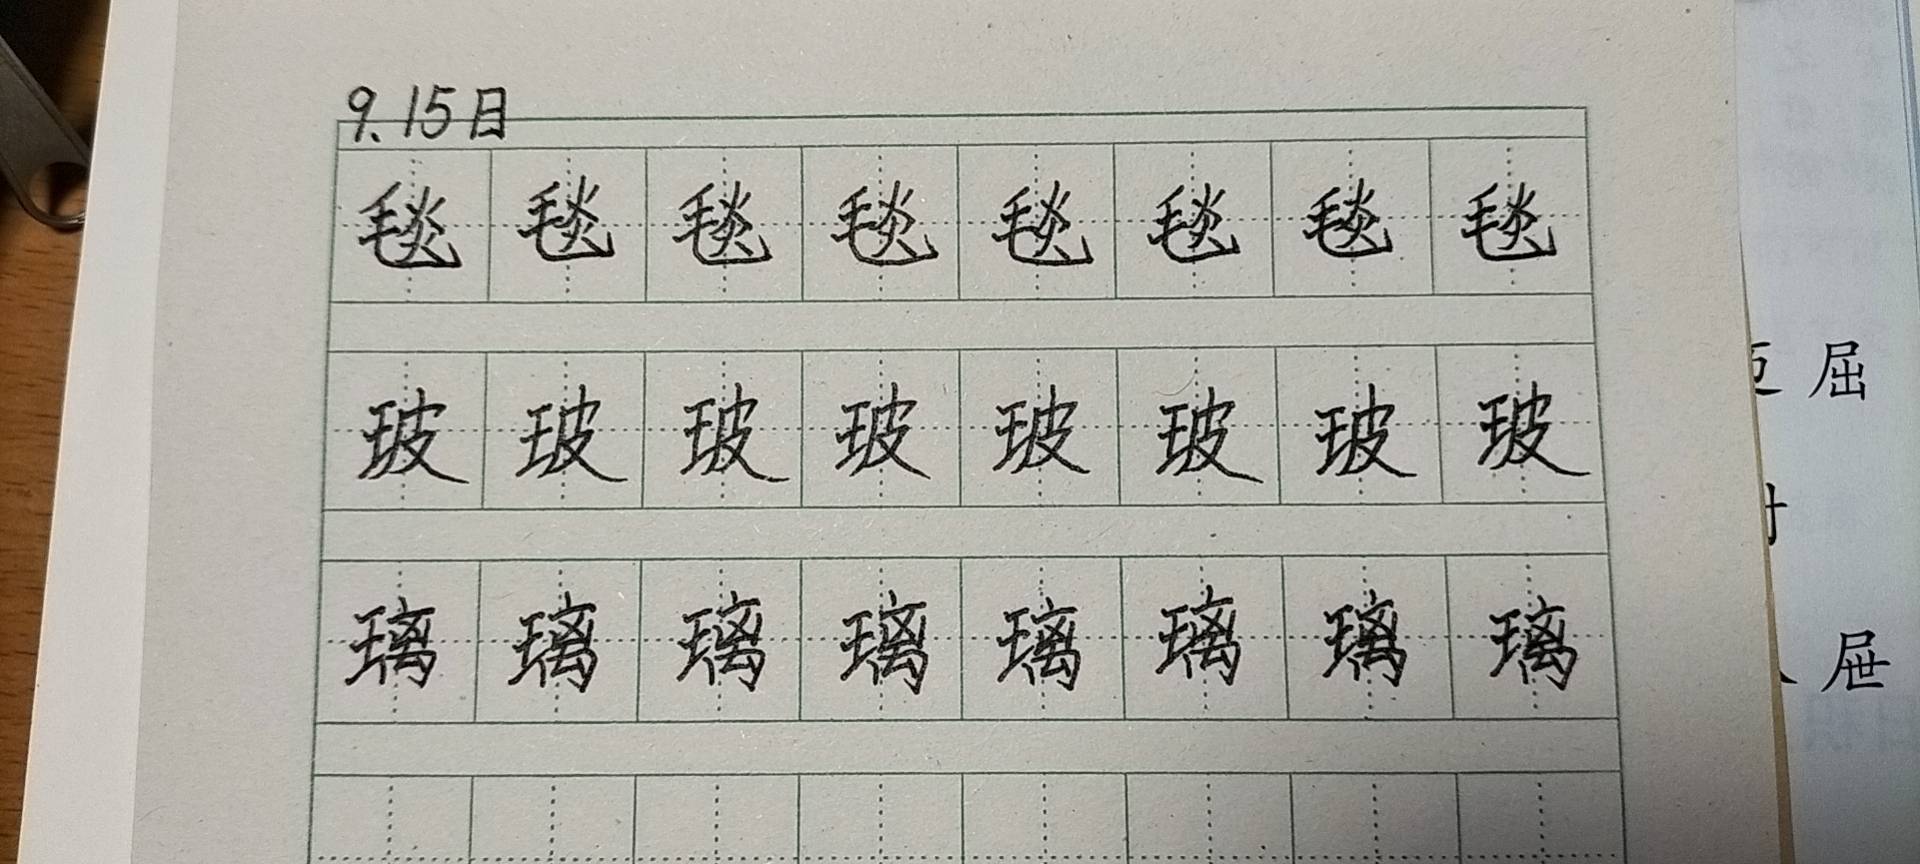 9.15日
毯毯毯毯毯毯毯毯
玻玻玻玻玻玻玻玻
璃璃璃璃璃璃璃璃
屈
屉